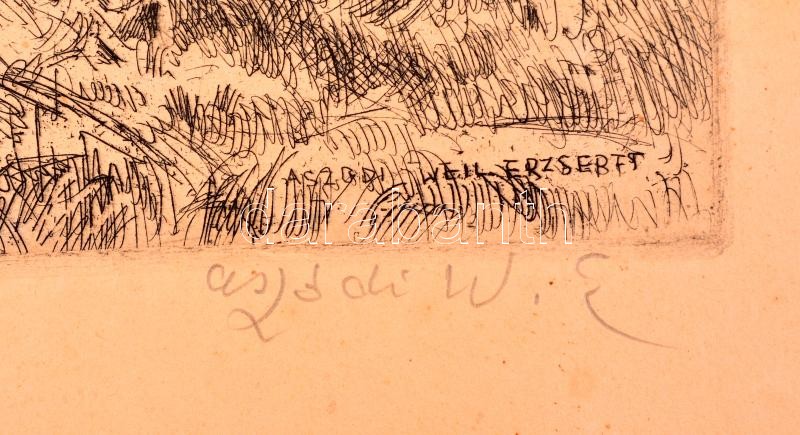 ASZÓDI WEIL ERZSÉBET
darabanth
aszódi W. E